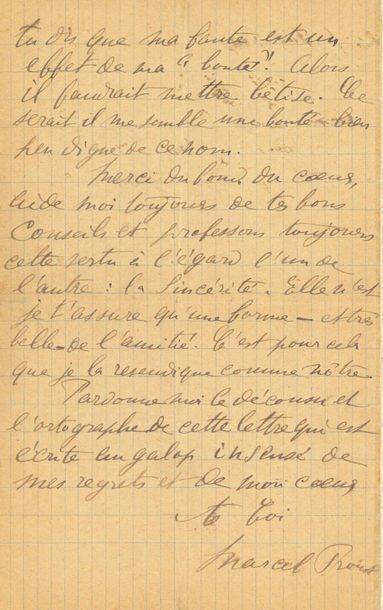 tu dis que ma faute est un
effet de ma "bonté"! Alors
il faudrait mettre bêtise. Ce
serait il me semble une bonté bien
peu digne de ce nom.
Merci du fond du cœur,
aide moi toujours de tes bons
Conseils et professons toujours
cette vertu à l'égard l'un de
l'autre : la Sincérité. Elle n'est
je t'assure qu'une forme – et très
belle – de l'amitié. C'est pour cela
que je la revendique comme nôtre
Pardonne moi le décousu et
l'ortographe de cette lettre qui est
écrite au galop insensé de
mes regrets et de mon cœur
A toi
Marcel Proust